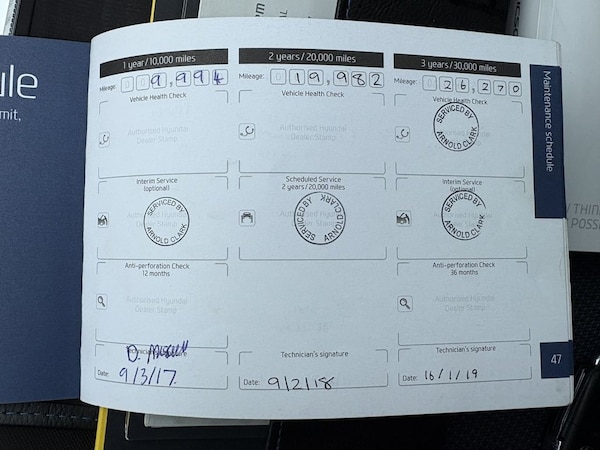 ule
mit,
1 year/10,000 miles
Mileage: 0 0 9,994
Vehicle Health Check
Authorised Hyundai
Dealer Stamp
Interim Service
(optional)
SERVICED BY
ARNOLD CLARK
Anti-perforation Check
12 months
Authorised Hyundai
Dealer Stamp
Date: 9/3/17
2 years/20,000 miles
Mileage: 0 19,982
Vehicle Health Check
Authorised Hyundai
Dealer Stamp
Scheduled Service
2 years/20,000 miles
SERVICED BY
ARNOLD CLARK
Technician's signature
Date: 9/2/18
3 years/30,000 miles
Mileage: 0 26,270
Vehicle Health Check
SERVICED BY
ARNOLD CLARK
Interim Service
(optional)
SERVICED BY
ARNOLD CLARK
Anti-perforation Check
36 months
Authorised Hyundai
Dealer Stamp
Technician's signature
Date: 16/1/19
Maintenance schedule
47
THIN
POSS